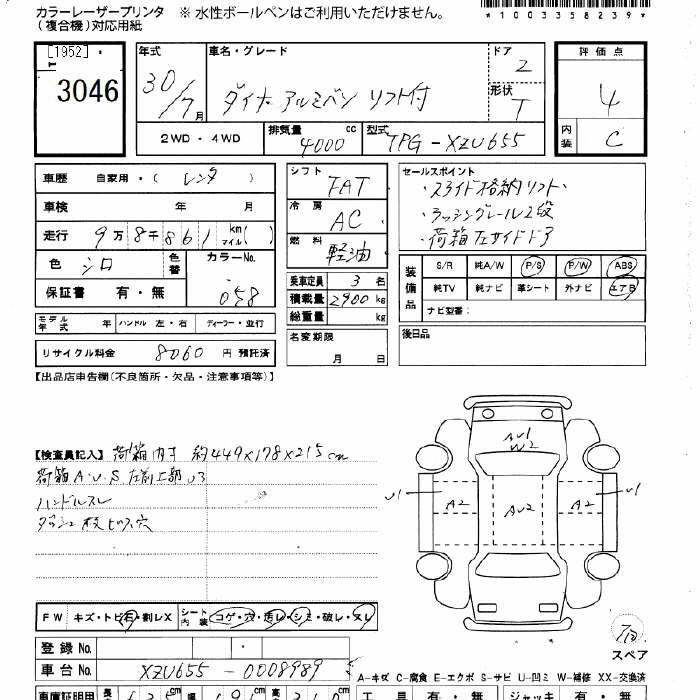 カラーレーザープリンタ ※ 水性ボールペンはご利用いただけません。
(複合機)対応用紙
*1003358239*
[1952]
3046
年式 車名・グレード ドア 評価点
30/7月 ダイナ アルミバン リフト付 2 4
形状 T
2WD・4WD 排気量 4000 cc 型式 TPG-XZU655 内装 C
車歴 自家用・( レンタ )
車検 年 月
走行 9万8千861 km マイル( )
色 シロ 色替 カラーNo.
保証書 有・無 058
シフト FAT
冷房 AC
燃料 軽油
セールスポイント
・スライド格納リフト、
・ラッシングレール2段
・荷箱左サイドドア
乗車定員 3 名
積載量 2900 kg
総重量 kg
装備品 S/R 純A/W P/S P/W ABS
純TV 純ナビ 革シート 外ナビ エアB
ナビ型番:
モデル年式 年 ハンドル 左・右 ディーラー・並行
リサイクル料金 8060 円 預託済
名変期限 月 日
後日品
【出品店申告欄(不良箇所・欠品・注意事項等)】
【検査員記入】荷箱内寸 約449×178×215cm
荷箱A・U・S 左前上部U3
ハンドルスレ
ダッシュ板ビス穴
AU1
W2
U1 A2 AU2 A2 U1
FW キズ・トビ石・割レX シート内装 コゲ・穴・汚レ・シミ・破レ・スレ
スペア
登録No.
車台No. XZU655-0008989
A-キズ C-腐食 E-エクボ S-サビ U-凹ミ W-補修 XX-交換済
車庫証明用 長さ cm cm cm 工具 有・無 ジャッキ 有・無